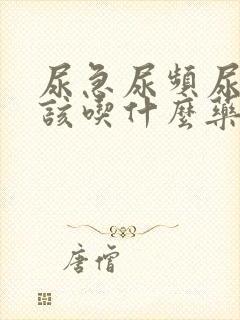 尿急尿頻尿
該喫什麼藥
唐僧